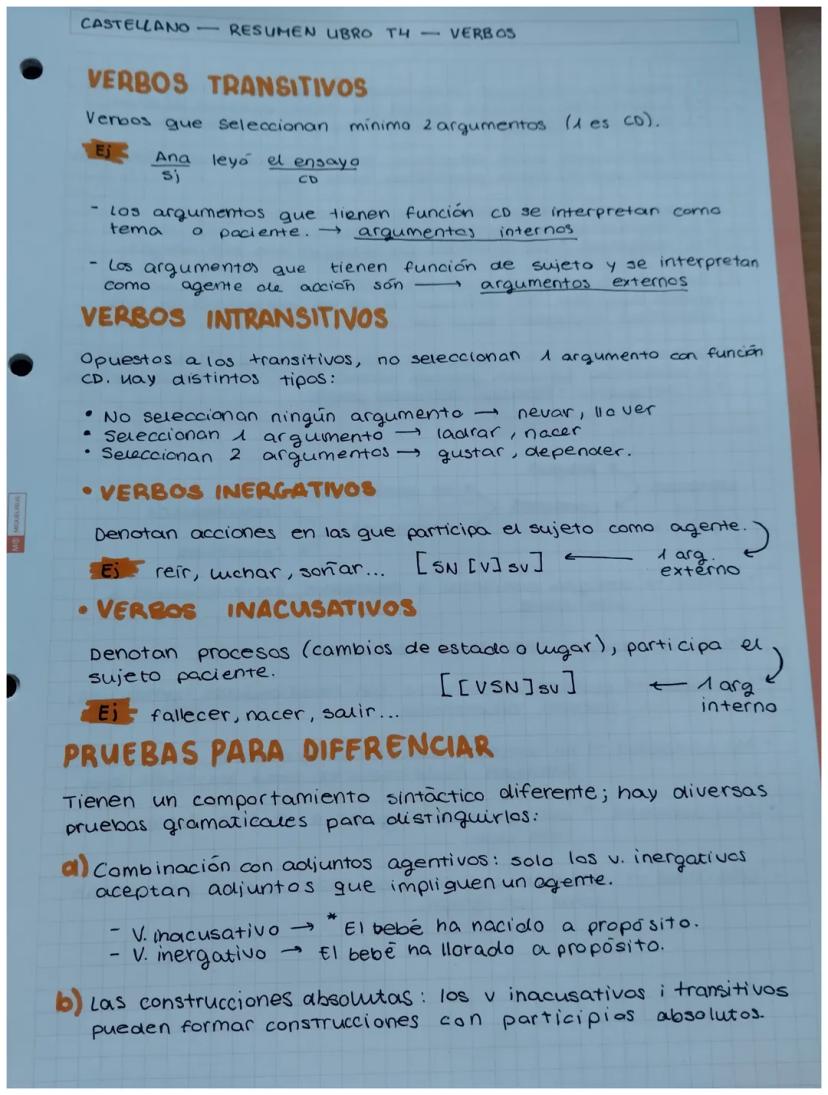 CASTELLANO — RESUMEN LIBRO T4 — VERBOS
VERBOS TRANSITIVOS
Verbos que seleccionan mínimo 2 argumentos (1 es CD).
Ej Ana leyó el ensayo
Sj CD
- Los argumentos que tienen función CD se interpretan como
tema o paciente. → argumentos internos
- Los argumentos que tienen función de sujeto y se interpretan
como agente de acción són → argumentos externos
VERBOS INTRANSITIVOS
Opuestos a los transitivos, no seleccionan 1 argumento con función
CD. Hay distintos tipos:
• No seleccionan ningún argumento → nevar, llover
• Seleccionan 1 argumento → ladrar, nacer
• Seleccionan 2 argumentos → gustar, depender.
• VERBOS INERGATIVOS
Denotan acciones en las que participa el sujeto como agente.
Ej reír, luchar, soñar... [SN [V] SV] ← 1 arg.
externo
• VERBOS INACUSATIVOS
Denotan procesos (cambios de estado o lugar), participa el
sujeto paciente.
[[VSN]SV] ← 1 arg
interno
Ej fallecer, nacer, salir...
PRUEBAS PARA DIFERENCIAR
Tienen un comportamiento sintáctico diferente; hay diversas
pruebas gramaticales para distinguirlos:
a) Combinación con adjuntos agentivos: solo los v. inergativos
aceptan adjuntos que impliquen un agente.
- V. inacusativo → *El bebé ha nacido a propósito.
- V. inergativo → El bebé ha llorado a propósito.
b) Las construcciones absolutas: los v inacusativos i transitivos
pueden formar construcciones con participios absolutos.
MIQUELRIUS